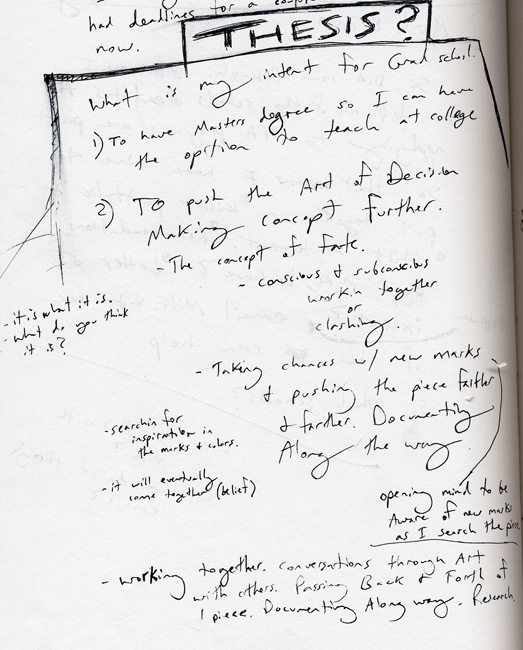 had deadlines for a
now.
THESIS?
What is my intent for Grad school.
1) To have Masters degree so I can have
the option to teach at college
2) To push the Art of Decision
Making concept further.
- The concept of fate.
- conscious & subconscious
workin together
or
clashing.
- it is what it is.
- what do you think
it is?
- Taking chances w/ new marks
& pushing the piece farther
& farther. Documenting
Along the way.
- searchin for
inspiration in
the marks & colors.
- it will eventually
come together (belief)
opening mind to be
Aware of new marks
as I search the piece
- working together. conversations through Art
with others. Passing Back & Forth of
1 piece. Documenting Along way. Research.